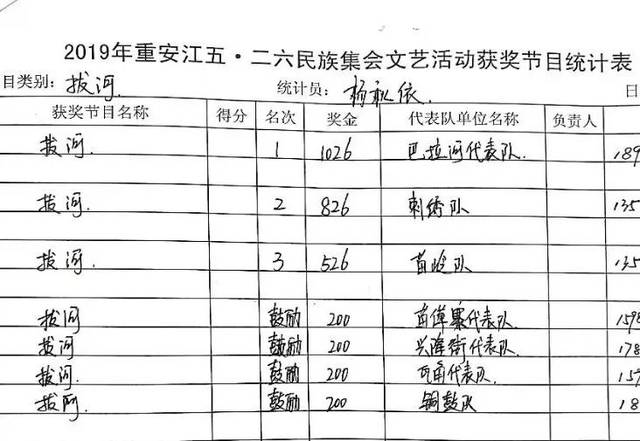 2019年重安江五·二六民族集会文艺活动获奖节目统计表
目类别: 拔河. 统计员: 杨 依. 日
获奖节目名称 得分 名次 奖金 代表队单位名称 负责人
拔河. 1 1026 巴拉河代表队. 189
拔河. 2 826 刺绣队 135
拔河. 3 526 苗 队 135
拔河 鼓励 200 代表队. 159
拔河. 鼓励 200 兴隆街代表队. 178
拔河. 鼓励 200 瓦角代表队. 157
拔河. 鼓励 200 铜鼓队 18